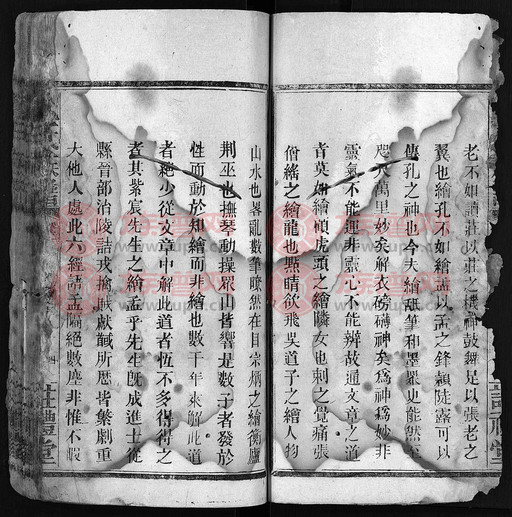 老不如讀莊以莊之機神鼓舞是以張老之
翼也繪孔不如繪孟以孟之鋒頴陡露可以
傳孔之神也今夫繪舐筆和墨眾史能然至
咫尺萬里妙矣解衣傍礴神矣為神為妙非
靈氣不能運非靈心不能辨故通文章之
者莫如繪傾虎頭之繪隣女也刺之覺痛張
僧繇之繪龍也點睛欲飛吳道子之繪人物
山水也畧亂數筆瞭然在目宗炳之繪衡廬
荆巫也撫琴動操眾山皆響是數子者發於
性而動於知繪而非繪也數千年來解此道
者絶少從文章中解此道者恆不多得得之
者其紫宸先生之繪孟乎先生既成進士從
縣晉部治陵詰戎擒賊獻馘所歷皆繁劇重
大他人處此六經語孟隔絕數塵非惟不暇
世禮堂